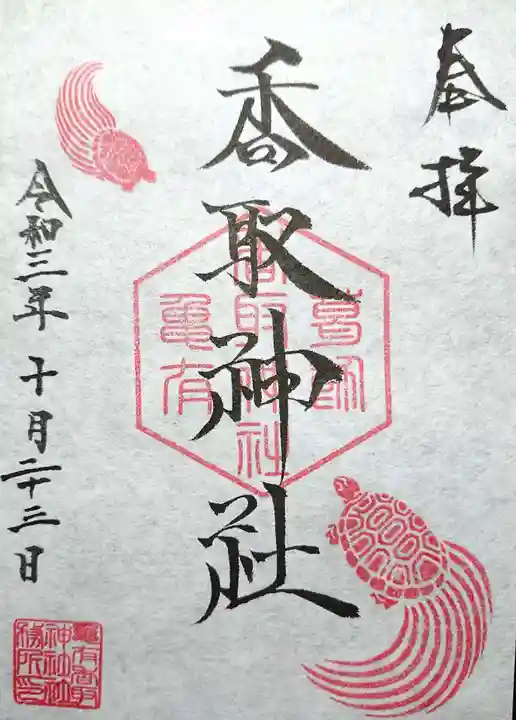 奉拝
香取神社
葛飾
香取神社
亀有
令和三年十月二十三日
亀有香取
神社社
務所印